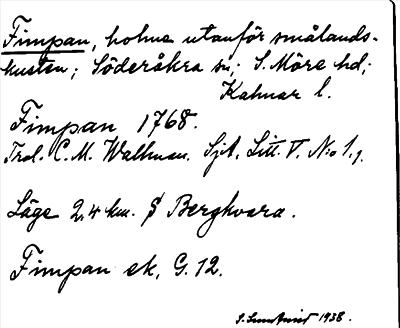 Fimpan, holme utanför smålands-
kusten; Söderåkra sn; S. Möre hd;
Kalmar l.
Fimpan 1768.
Trol. C. M. Wallman. Sjk. Litt. V. No 1.
Läge 2,4 km. S Bergkvara.
Fimpan ek, G. 12.
S. Sundkvist 1938.